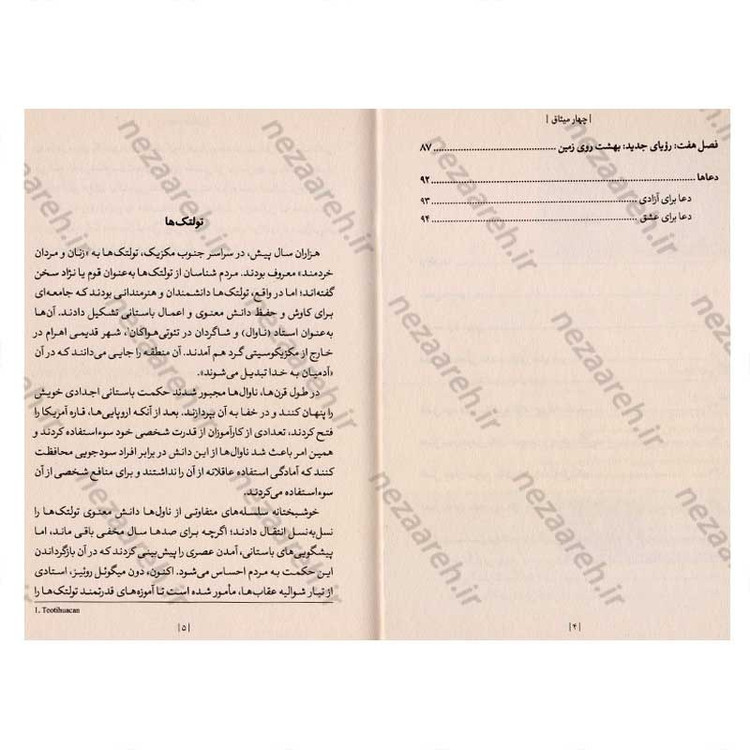 | چهار میثاق |
فصل هفت: رؤیای جدید: بهشت روی زمین ........................ ۸۷
دعاها ........................ ۹۲
دعا برای آزادی ........................ ۹۳
دعا برای عشق ........................ ۹۴
|۴|
تولتک‌ها
هزاران سال پیش، در سراسر جنوب مکزیک، تولتک‌ها به «زنان و مردان
خردمند» معروف بودند. مردم شناسان از تولتک‌ها به‌عنوان قوم یا نژاد سخن
گفته‌اند؛ اما در واقع، تولتک‌ها دانشمندان و هنرمندانی بودند که جامعه‌ای
برای کاوش و حفظ دانش معنوی و اعمال باستانی تشکیل دادند. آن‌ها
به‌عنوان استاد (ناوال) و شاگردان در تئوتی‌هواکان۱، شهر قدیمی اهرام در
خارج از مکزیکوسیتی گرد هم آمدند. آن منطقه را جایی می‌دانند که در آن
«آدمیان به خدا تبدیل می‌شوند».
در طول قرن‌ها، ناوال‌ها مجبور شدند حکمت باستانی اجدادی خویش
را پنهان کنند و در خفا به آن بپردازند. بعد از آنکه اروپایی‌ها، قاره آمریکا را
فتح کردند، تعدادی از کارآموزان از قدرت شخصی خود سوءاستفاده کردند و
همین امر باعث شد ناوال‌ها از این دانش در برابر افراد سودجویی محافظت
کنند که آمادگی استفاده عاقلانه از آن را نداشتند و برای منافع شخصی از آن
سوءاستفاده می‌کردند.
خوشبختانه سلسله‌های متفاوتی از ناول‌ها دانش معنوی تولتک‌ها را
نسل‌به‌نسل انتقال دادند؛ اگرچه برای صدها سال مخفی باقی ماند، اما
پیشگویی‌های باستانی، آمدن عصری را پیش‌بینی کردند که در آن بازگرداندن
این حکمت به مردم احساس می‌شود. اکنون، دون میگوئل روئیز، استادی
از تبار شوالیه عقاب‌ها، مأمور شده است تا آموزه‌های قدرتمند تولتک‌ها را
1. Teotihuacan
|۵|
nezaareh.ir